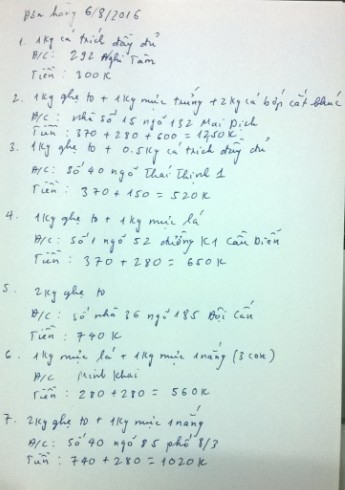 Bán hàng 6/8/2016
1. 1kg cá trích đầy đủ
Đ/C: 292 Nghi Tàm
Tiền: 300K
2. 1kg ghẹ to + 1kg mực trứng + 2kg cá bớp cắt khúc
Đ/C: Nhà số 15 ngõ 132 Mai Dịch
Tiền: 370 + 280 + 600 = 1250K
3. 1kg ghẹ to + 0.5kg cá trích đầy đủ
Đ/C: Số 40 ngõ Thái Thịnh 1
Tiền: 370 + 150 = 520K
4. 1kg ghẹ to + 1kg mực lá
Đ/C: Số 1 ngõ 52 đường K1 Cầu Diễn
Tiền: 370 + 280 = 650K
5. 2kg ghẹ to
Đ/C: Số nhà 36 ngõ 185 Đội Cấn
Tiền: 740K
6. 1kg mực lá + 1kg mực 1 nắng (3 con)
Đ/C Minh Khai
Tiền: 280 + 280 = 560K
7. 2kg ghẹ to + 1kg mực 1 nắng
Đ/C: Số 40 ngõ 85 phố 8/3
Tiền: 740 + 280 = 1020K